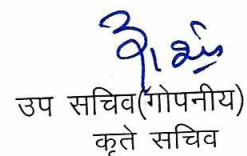 उप सचिव(गोपनीय)
कृते सचिव